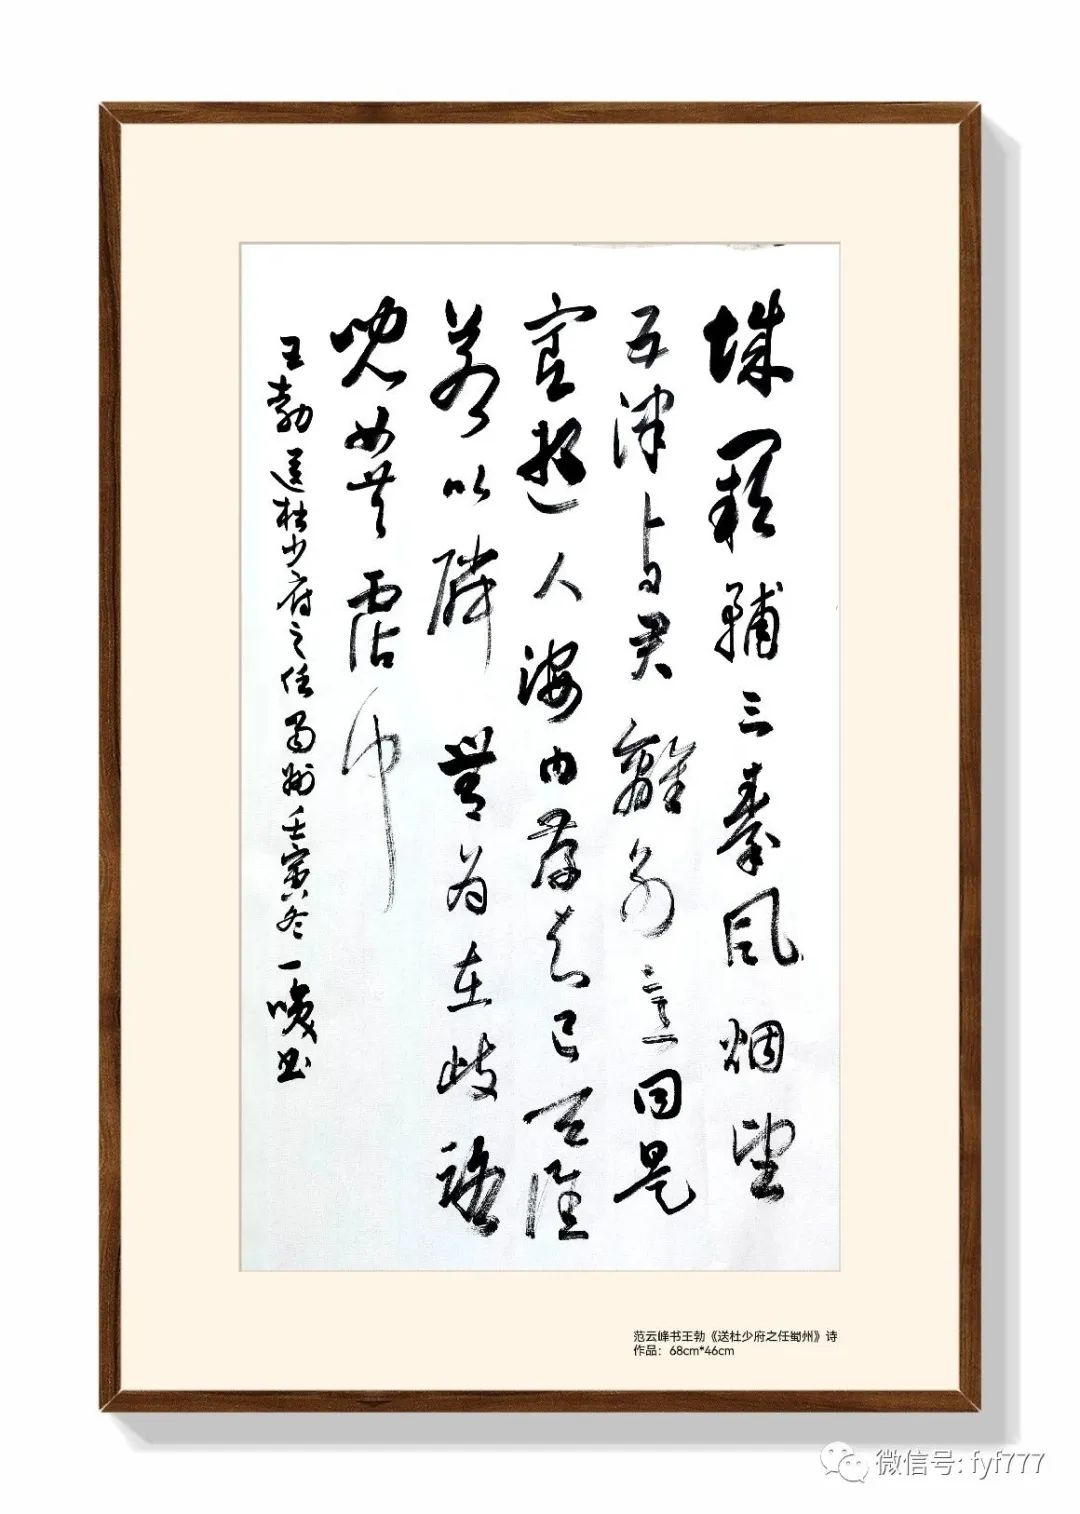 城闕輔三秦風烟望
五津与君離別意同是
宦遊人海内存知己天涯
若比隣無为在歧路
児女共霑巾
王勃送杜少府之任蜀州壬寅冬一书
范云峰书王勃《送杜少府之任蜀州》诗
作品：68cm*46cm
微信号: fyf777